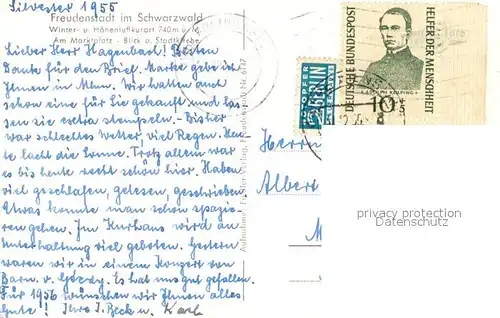 Silvester 1955
Freudenstadt im Schwarzwald
Winter- u. Höhenluftkurort 740 m ü. M.
Am Marktplatz - Blick a. Stadtkirche
Lieber Herr Hagenbach! Besten
Dank für den Brief. Marke gebe ich
Ihnen in Mchn. Wir hatten auch
schon eine für Sie gekauft und las-
sen sie extra stempeln. - Bisher
war schlechtes Wetter, viel Regen. Heu-
te lacht die Sonne. Trotz allem war
es bis heute recht schön hier. Haben
viel geschlafen, gelesen, geschrieben.
Etwas konnte man schon spazie-
ren gehen. Im Kurhaus wird an
Unterhaltung viel geboten. Gestern
waren wir in einem Konzert von
Barn. v. Géczy. Es hat uns gut gefallen.
Für 1956 wünschen wir Ihnen alles
Gute! Ihre I. Beck u. Karl
NOTOPFER
2 BERLIN
STEUERMARKE
DEUTSCHE BUNDESPOST
HELFER DER MENSCHHEIT
ADOLPH KOLPING
10
Herrn
Albert
M
privacy protection
Datenschutz